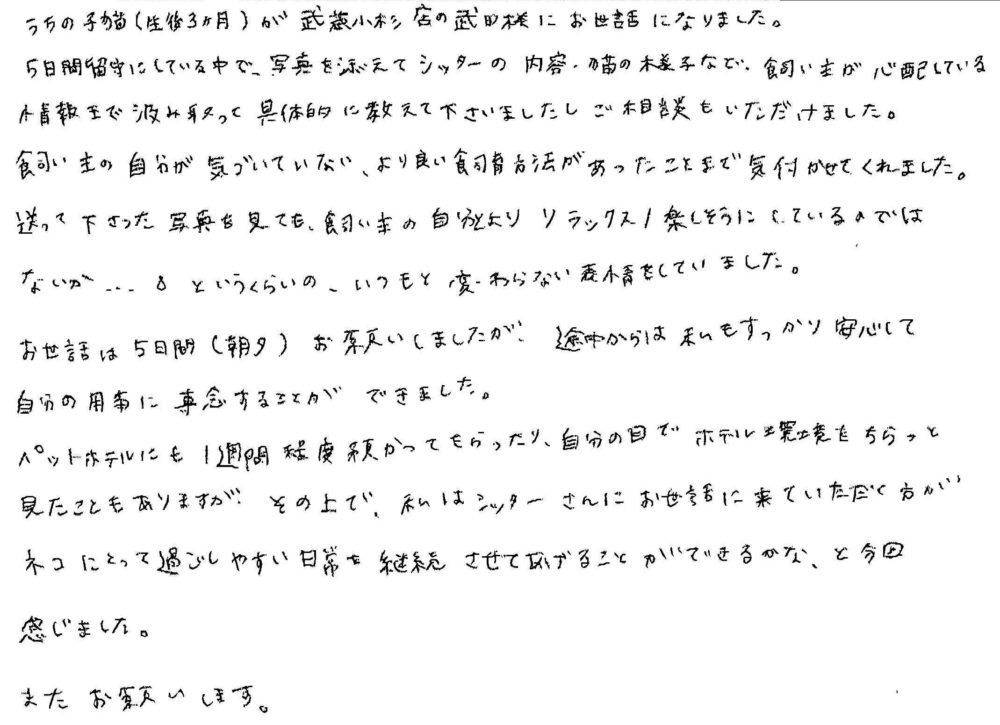 うちの子猫(生後3ヵ月)が 武蔵小杉店の武田様にお世話になりました。
5日間留守にしている中で、写真を添えてシッターの内容・猫の様子など、飼い主が心配している
情報まで汲み取って具体的に教えて下さいましたしご相談もいただけました。
飼い主の自分が気づいていない、より良い飼育方法があったことまで気付かせてくれました。
送って下さった写真を見ても、飼い主の自分より リラックス/楽しそうにしているのでは
ないか…。というくらいの、いつもと変わらない表情をしていました。
お世話は5日間(朝夕)お願いしましたが、途中からは私もすっかり安心して
自分の用事に専念することができました。
ペットホテルにも1週間程度預かってもらったり、自分の目でホテル環境をちらっと
見たこともありますが、その上で、私はシッターさんにお世話に来ていただく方が
ネコにとって過ごしやすい日常を継続させてあげることができるかな、と今回
感じました。
またお願いします。